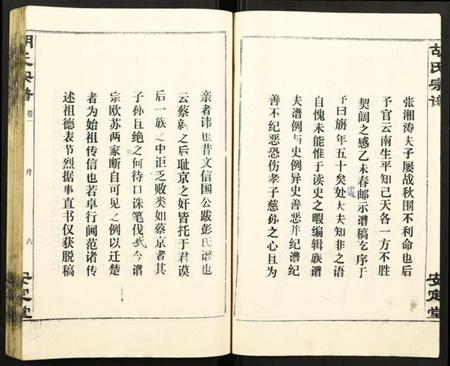 胡氏宗谱
安定堂
张湘涛夫子屡战秋围不利命也后
予官云南生平知己天各一方不胜
契阔之感乙未春邮示谱稿乞序于
予曰旃年五十矣处大夫知非之语
處
自愧未能惟于读史之暇编辑族谱
夫谱例与史例异史善恶并纪谱纪
善不纪恶恐伤孝子慈孙之心且为
亲者讳也昔文信国公跋彭氏谱也
云蔡京之后耻京之奸皆托于君谟
后一族之中讵乏败类如蔡京者其
子孙且绝之何待口诛笔伐哉今谱
宗欧苏两家断自可见之例以迁楚
者为始祖传信也若卓行阃范诸传
述祖德表节烈据事直书仅获脱稿
卷一
序
六
安定堂